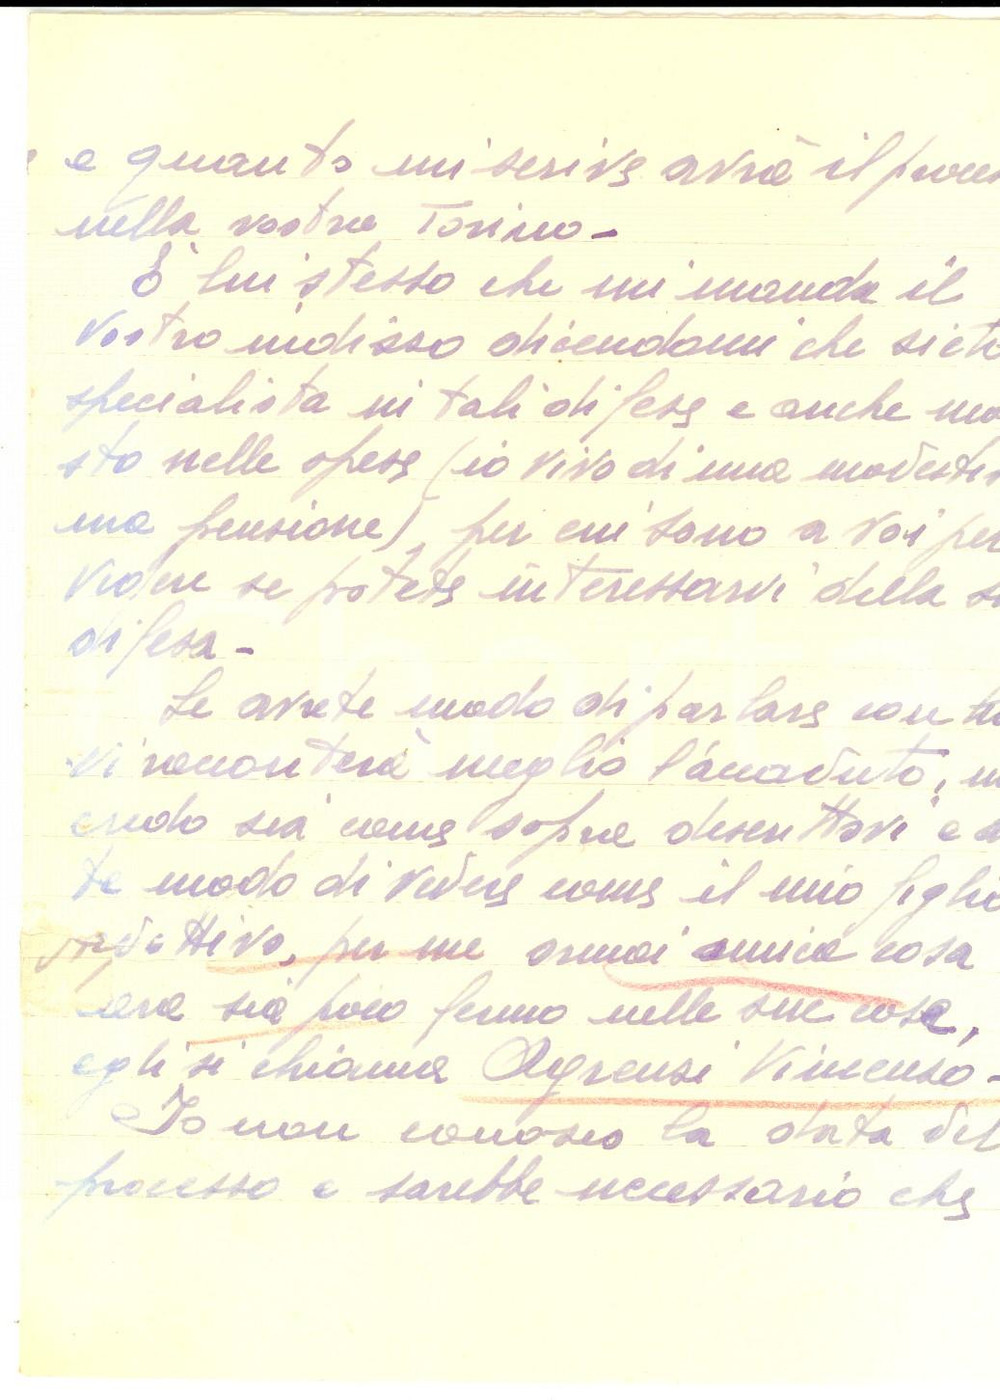 e quanto mi scrive avrà il proces
nella vostra Torino -
È lui stesso che mi manda il
vostro indisso dicendomi che siete
specialista in tali difese e anche mo
sto nelle spese (io vivo di una modestis
ma pensione) per cui sono a voi per
vider se potete interessarvi della s
difesa -
Se avete modo di parlare con lu
vi racconterà meglio l'accaduto, m
credo sia come sopra descrittovi e a
te modo di vedere come il mio figlio
per me ormai unica cosa
cara sia poco fermo nelle sue cose,
egli si chiama Agrensi Vincenso -
Io non conosco la data del
processo e sarebbe necessario che